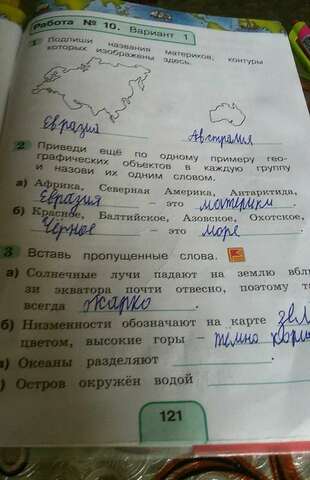 Работа № 10. Вариант 1
1 Подпиши названия материков, контуры
которых изображены здесь.
Евразия Австралия
2 Приведи ещё по одному примеру гео-
графических объектов в каждую группу
и назови их одним словом.
а) Африка, Северная Америка, Антарктида,
Евразия – это материки.
б) Красное, Балтийское, Азовское, Охотское,
Чёрное – это море.
3 Вставь пропущенные слова.
а) Солнечные лучи падают на землю вбли-
зи экватора почти отвесно, поэтому т
всегда жарко.
б) Низменности обозначают на карте зел
цветом, высокие горы – темно корич
) Океаны разделяют
) Остров окружён водой
121